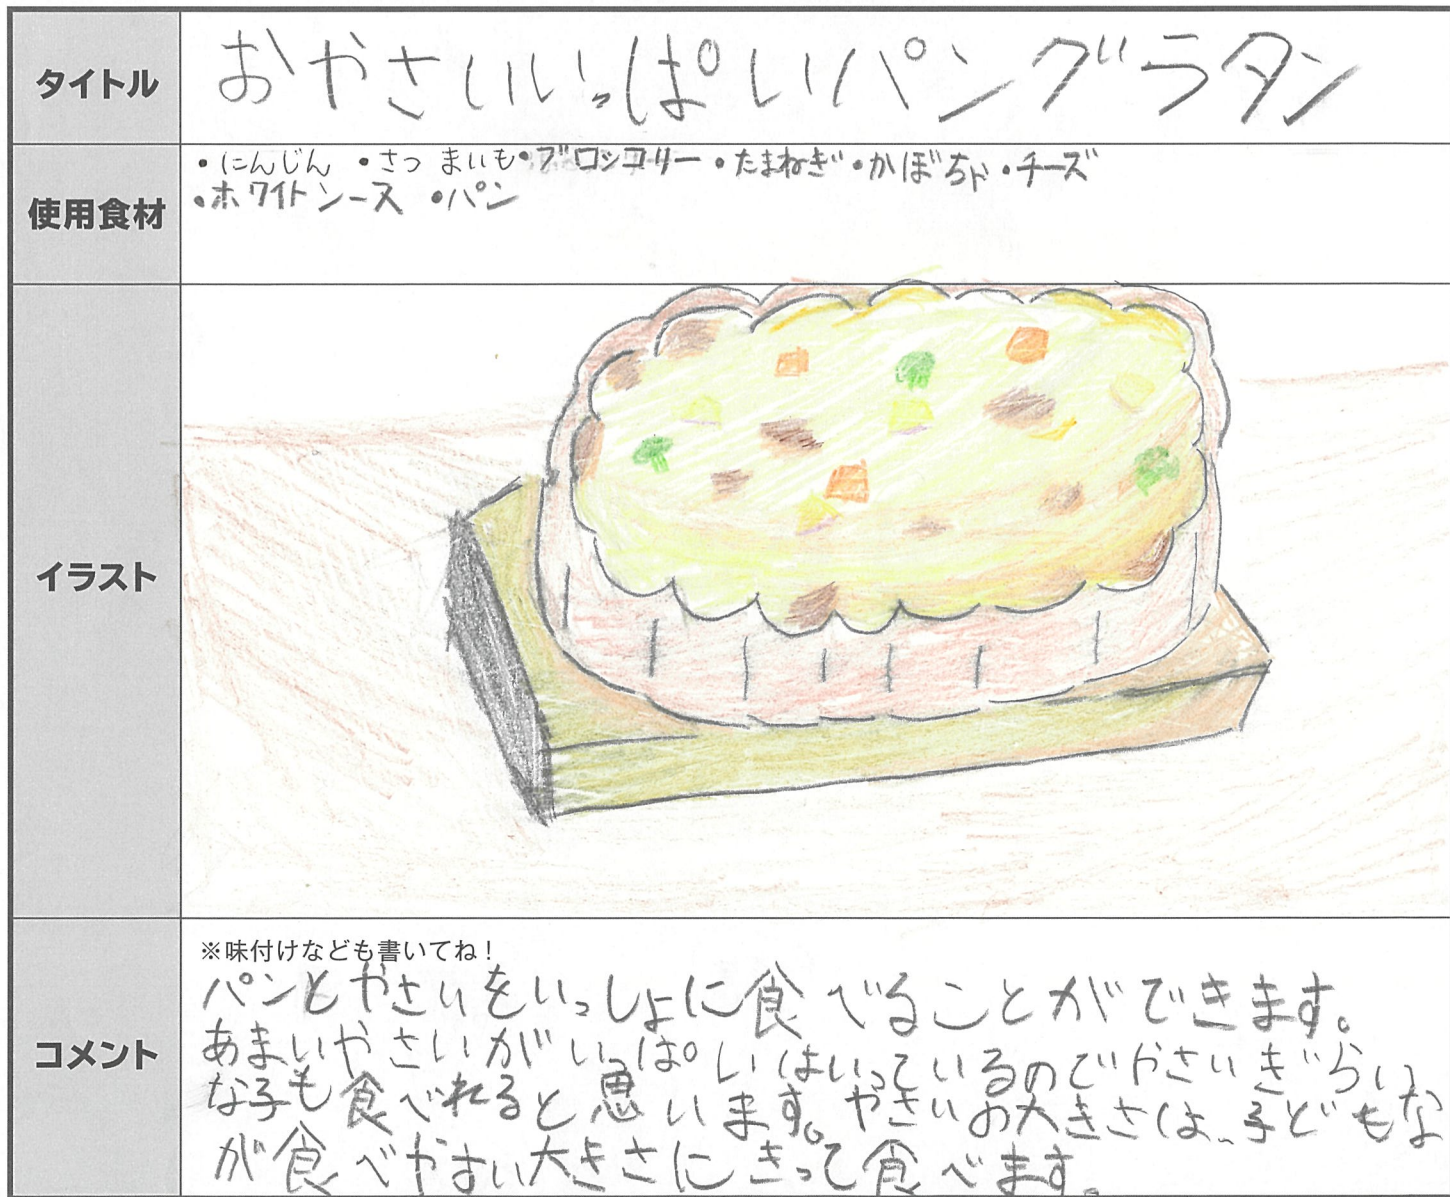 タイトル
おやさいいっぱいパングラタン
使用食材
・にんじん ・さつまいも・ブロッコリー・たまねぎ・かぼちゃ・チーズ
・ホワイトソース ・パン
イラスト
コメント
※味付けなども書いてね!
パンとやさいをいっしょに食べることができます。
あまいやさいがいっぱいはいっているのでやさいぎらい
な子も食べれると思います。やさいお大きさは、子どもな
が食べやすい大きさにきって食べます。